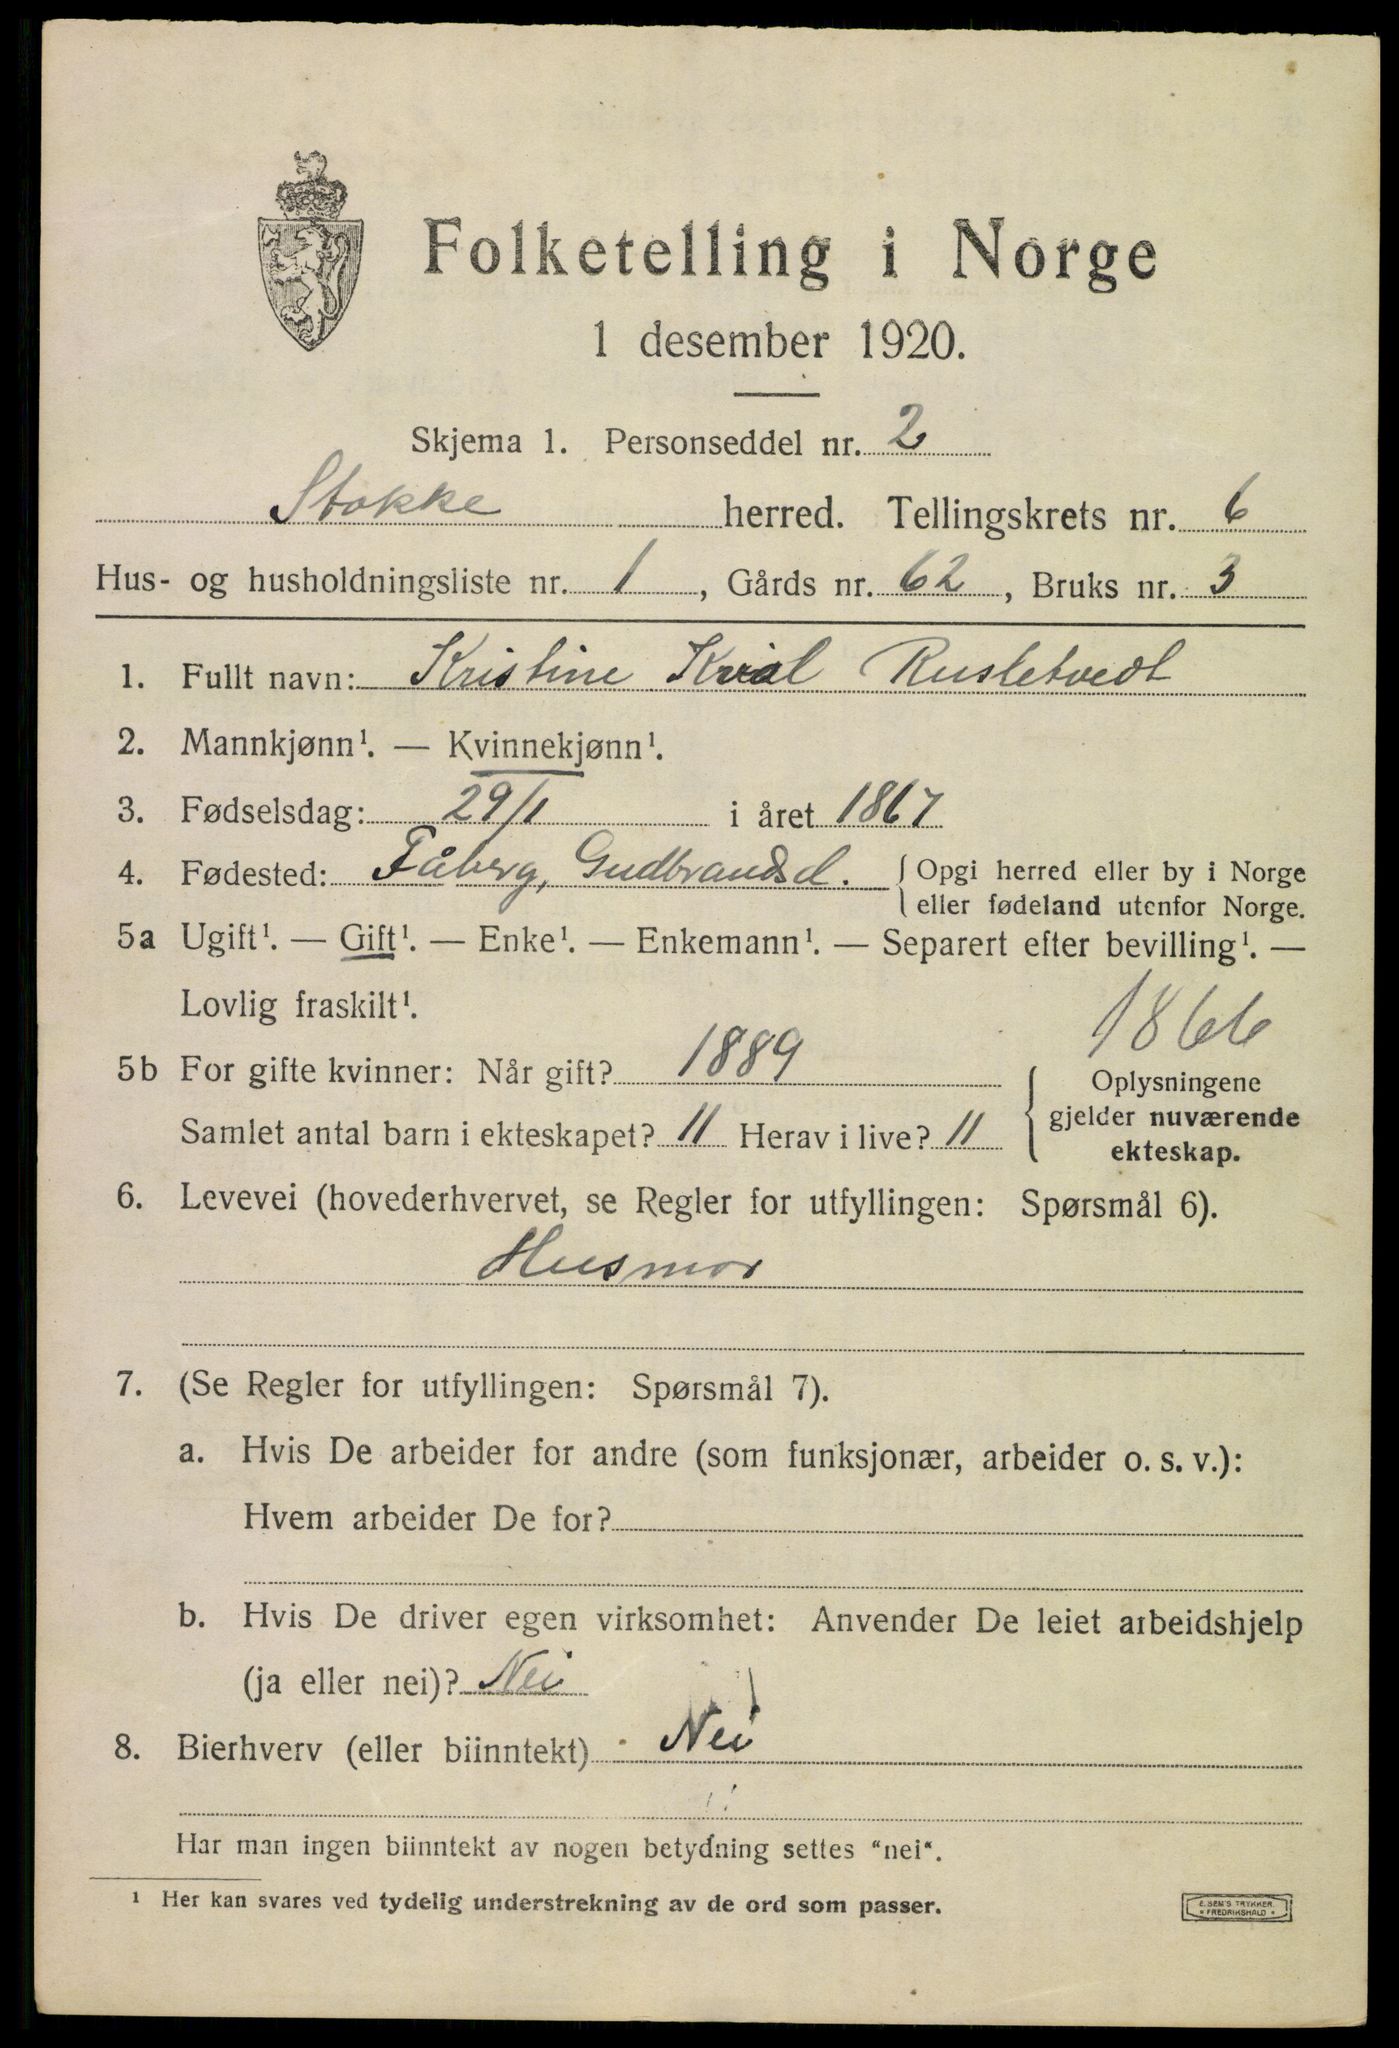 Folketelling i Norge
1 desember 1920.
Skjema 1. Personseddel nr. 2
Stokke herred. Tellingskrets nr. 6
Hus- og husholdningsliste nr. 1, Gårds nr. 62, Bruks nr. 3
1. Fullt navn: Kristine Rusletvedt
2. Mannkjønn¹. — Kvinnekjønn¹.
3. Fødselsdag: 29/1 i året 1867
4. Fødested: Fåberg, Gudbrandsd. { Opgi herred eller by i Norge
eller fødeland utenfor Norge.
5a Ugift¹. — Gift¹. — Enke¹. — Enkemann¹. — Separert efter bevilling¹. —
Lovlig fraskilt¹.
1866
5b For gifte kvinner: Når gift? 1889
Samlet antal barn i ekteskapet? 11 Herav i live? 11
{ Oplysningene
gjelder nuværende
ekteskap.
6. Levevei (hovederhvervet, se Regler for utfyllingen: Spørsmål 6).
Husmor
7. (Se Regler for utfyllingen: Spørsmål 7).
a. Hvis De arbeider for andre (som funksjonær, arbeider o. s. v.):
Hvem arbeider De for?
b. Hvis De driver egen virksomhet: Anvender De leiet arbeidshjelp
(ja eller nei)? Nei
8. Bierhverv (eller biinntekt) Nei
Har man ingen biinntekt av nogen betydning settes "nei".
¹ Her kan svares ved tydelig understrekning av de ord som passer.
E. SEM'S TRYKKER.
* FREDRIKSHALD *